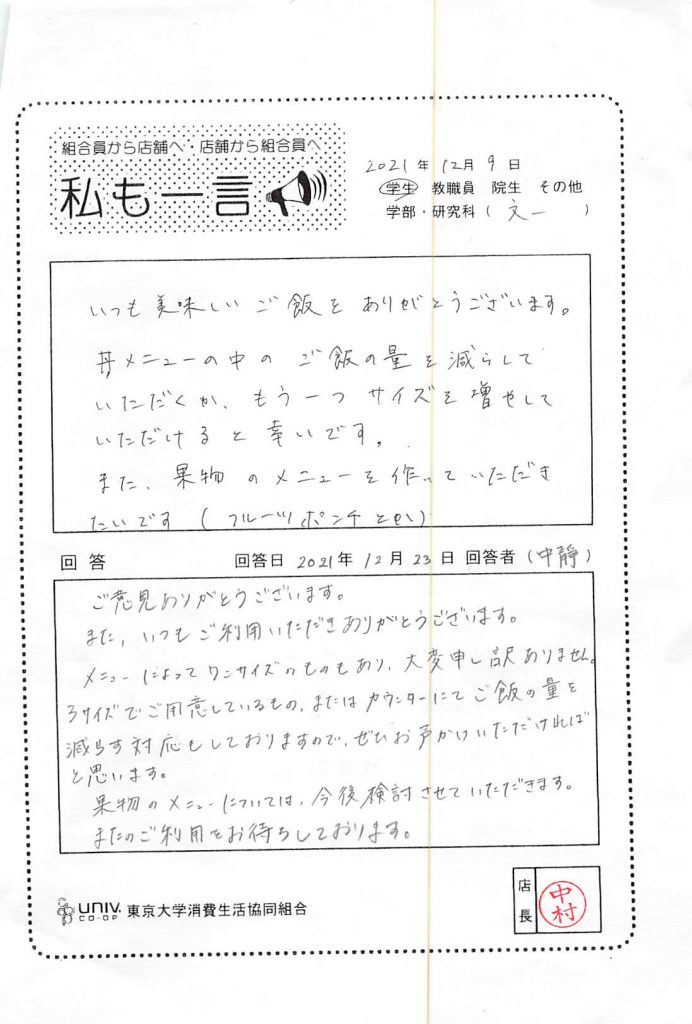 組合員から店舗へ・店舗から組合員へ
私も一言
2021年12月9日
学生 教職員 院生 その他
学部・研究科(文一)
いつも美味しいご飯をありがとうございます。
丼メニューの中のご飯の量を減らして
いただくか、もう一つサイズを増やして
いただけると幸いです。
また、果物のメニューを作っていただき
たいです(フルーツポンチとか)
回答 回答日 2021年12月23日 回答者(中静)
ご意見ありがとうございます。
また、いつもご利用いただきありがとうございます。
メニューによってワンサイズのものもあり、大変申し訳ありません。
3サイズでご用意しているもの、またはカウンターにてご飯の量を
減らす対応もしておりますので、ぜひお声かけいただければ
と思います。
果物のメニューについては、今後検討させていただきます。
またのご利用をお待ちしております。
UNIV. CO-OP 東京大学消費生活協同組合
店長
中村